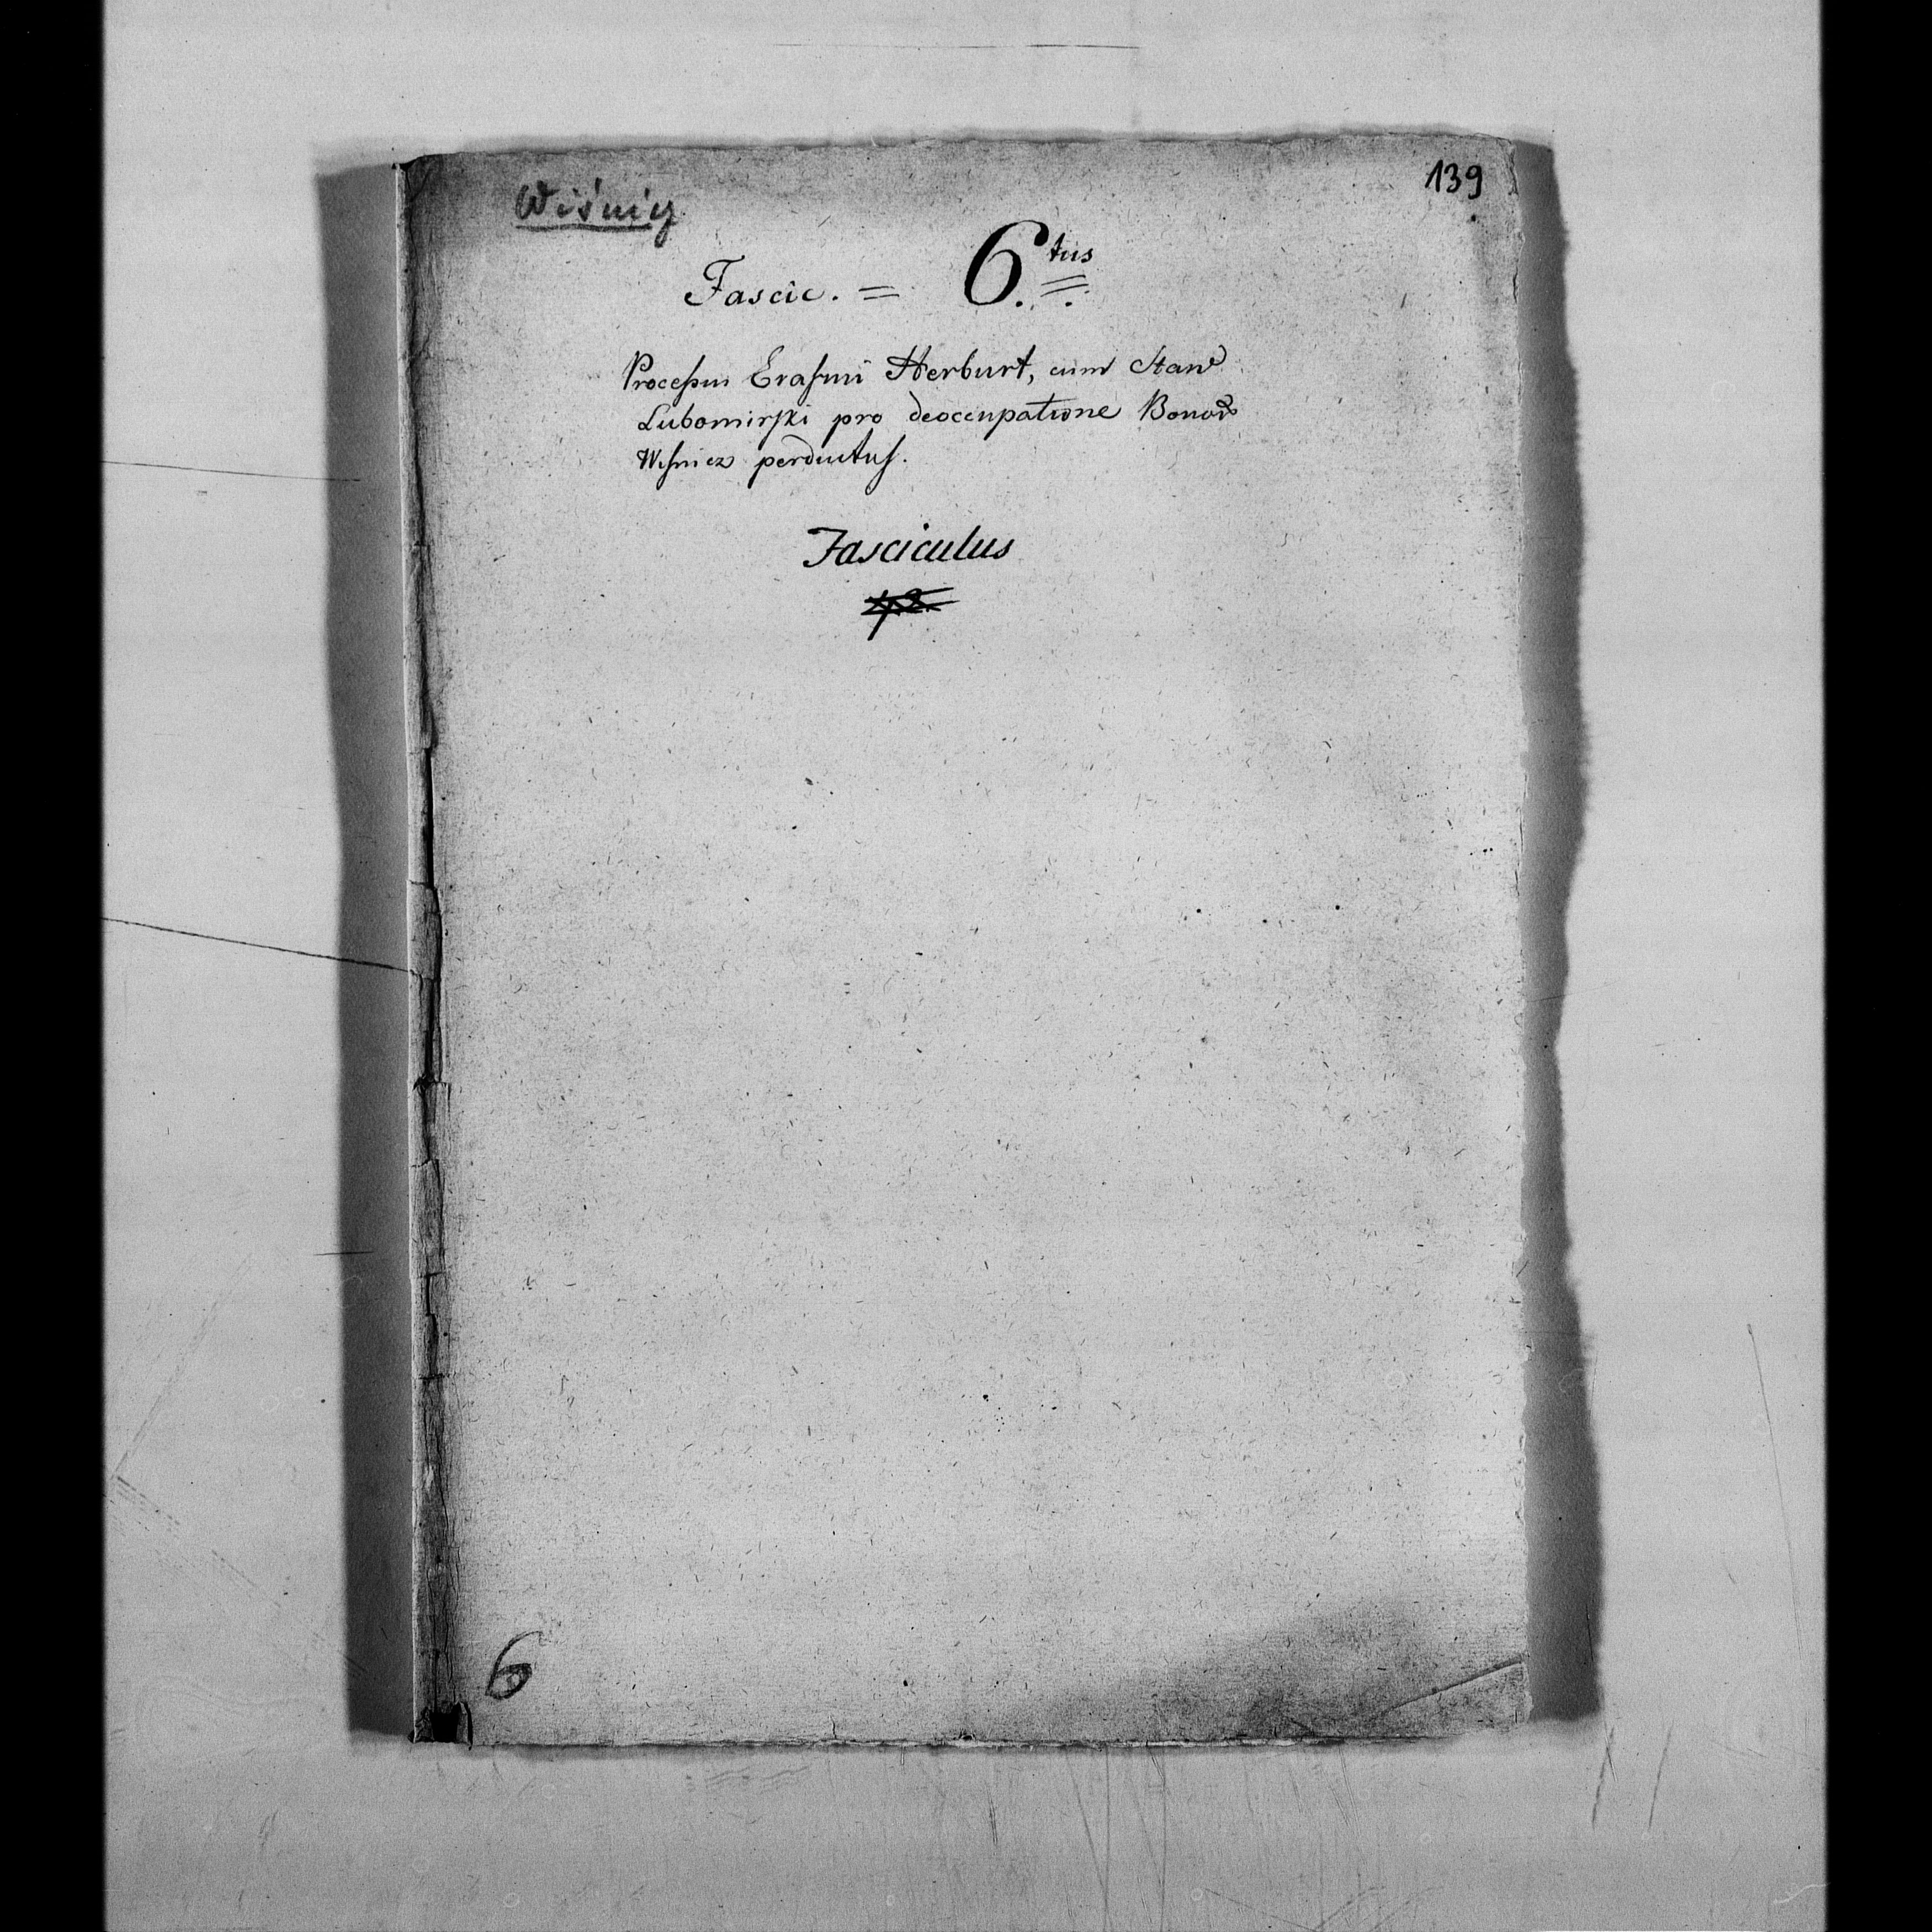 139
Wiśnicz
Fascic. = 6.tus
Processus Erasmi Herburt, cum Stan
Lubomirski pro deoccupatione Bonor
Wisnicz perductus.
Fasciculus
6